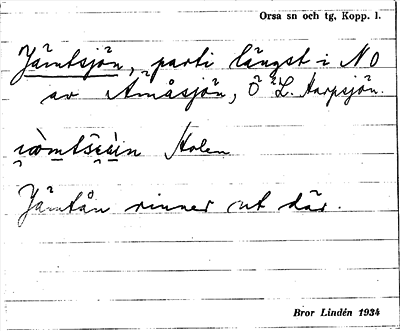 Orsa sn och tg, Kopp. l.
Jämtsjön, parti längst i NO
av Åmåsjön, Ö L. Harpsjön.
Holen
Jämtån rinner ut där.
Bror Lindén 1934